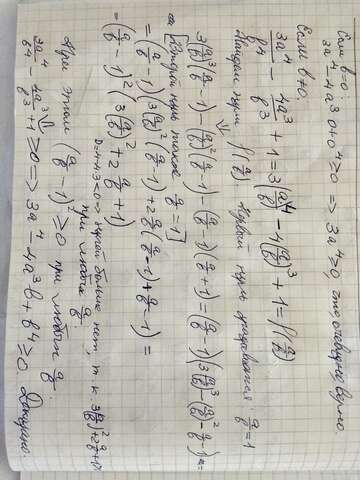 Если b=0:
3a⁴-4a³0+0⁴≥0 => 3a⁴≥0 это очевидно верно.
Если b≠0
3a⁴/b⁴ - 4a³/b³ + 1 = 3(a/b)⁴ - 4(a/b)³ + 1 = f(a/b)
Найдем нули f(a/b). первый нуль a/b=1
3(a/b)³(a/b-1) - (a/b)²(a/b-1) - (a/b-1)(a/b+1) = (a/b-1)(3(a/b)³-(a/b)²-a/b-1) =
[Второй нуль также a/b=1]
= (a/b-1)(3(a/b)²(a/b-1)+2a/b(a/b-1)+a/b-1) =
= (a/b-1)²(3(a/b)²+2a/b+1)
D=4-4·3<0 => нулей больше нет, т к 3(a/b)²+2a/b+1>0
при любых a/b
При этом (a/b-1)²≥0 при любых a/b.
3a⁴/b⁴ - 4a³/b³ + 1≥0 => 3a⁴-4a³b+b⁴≥0